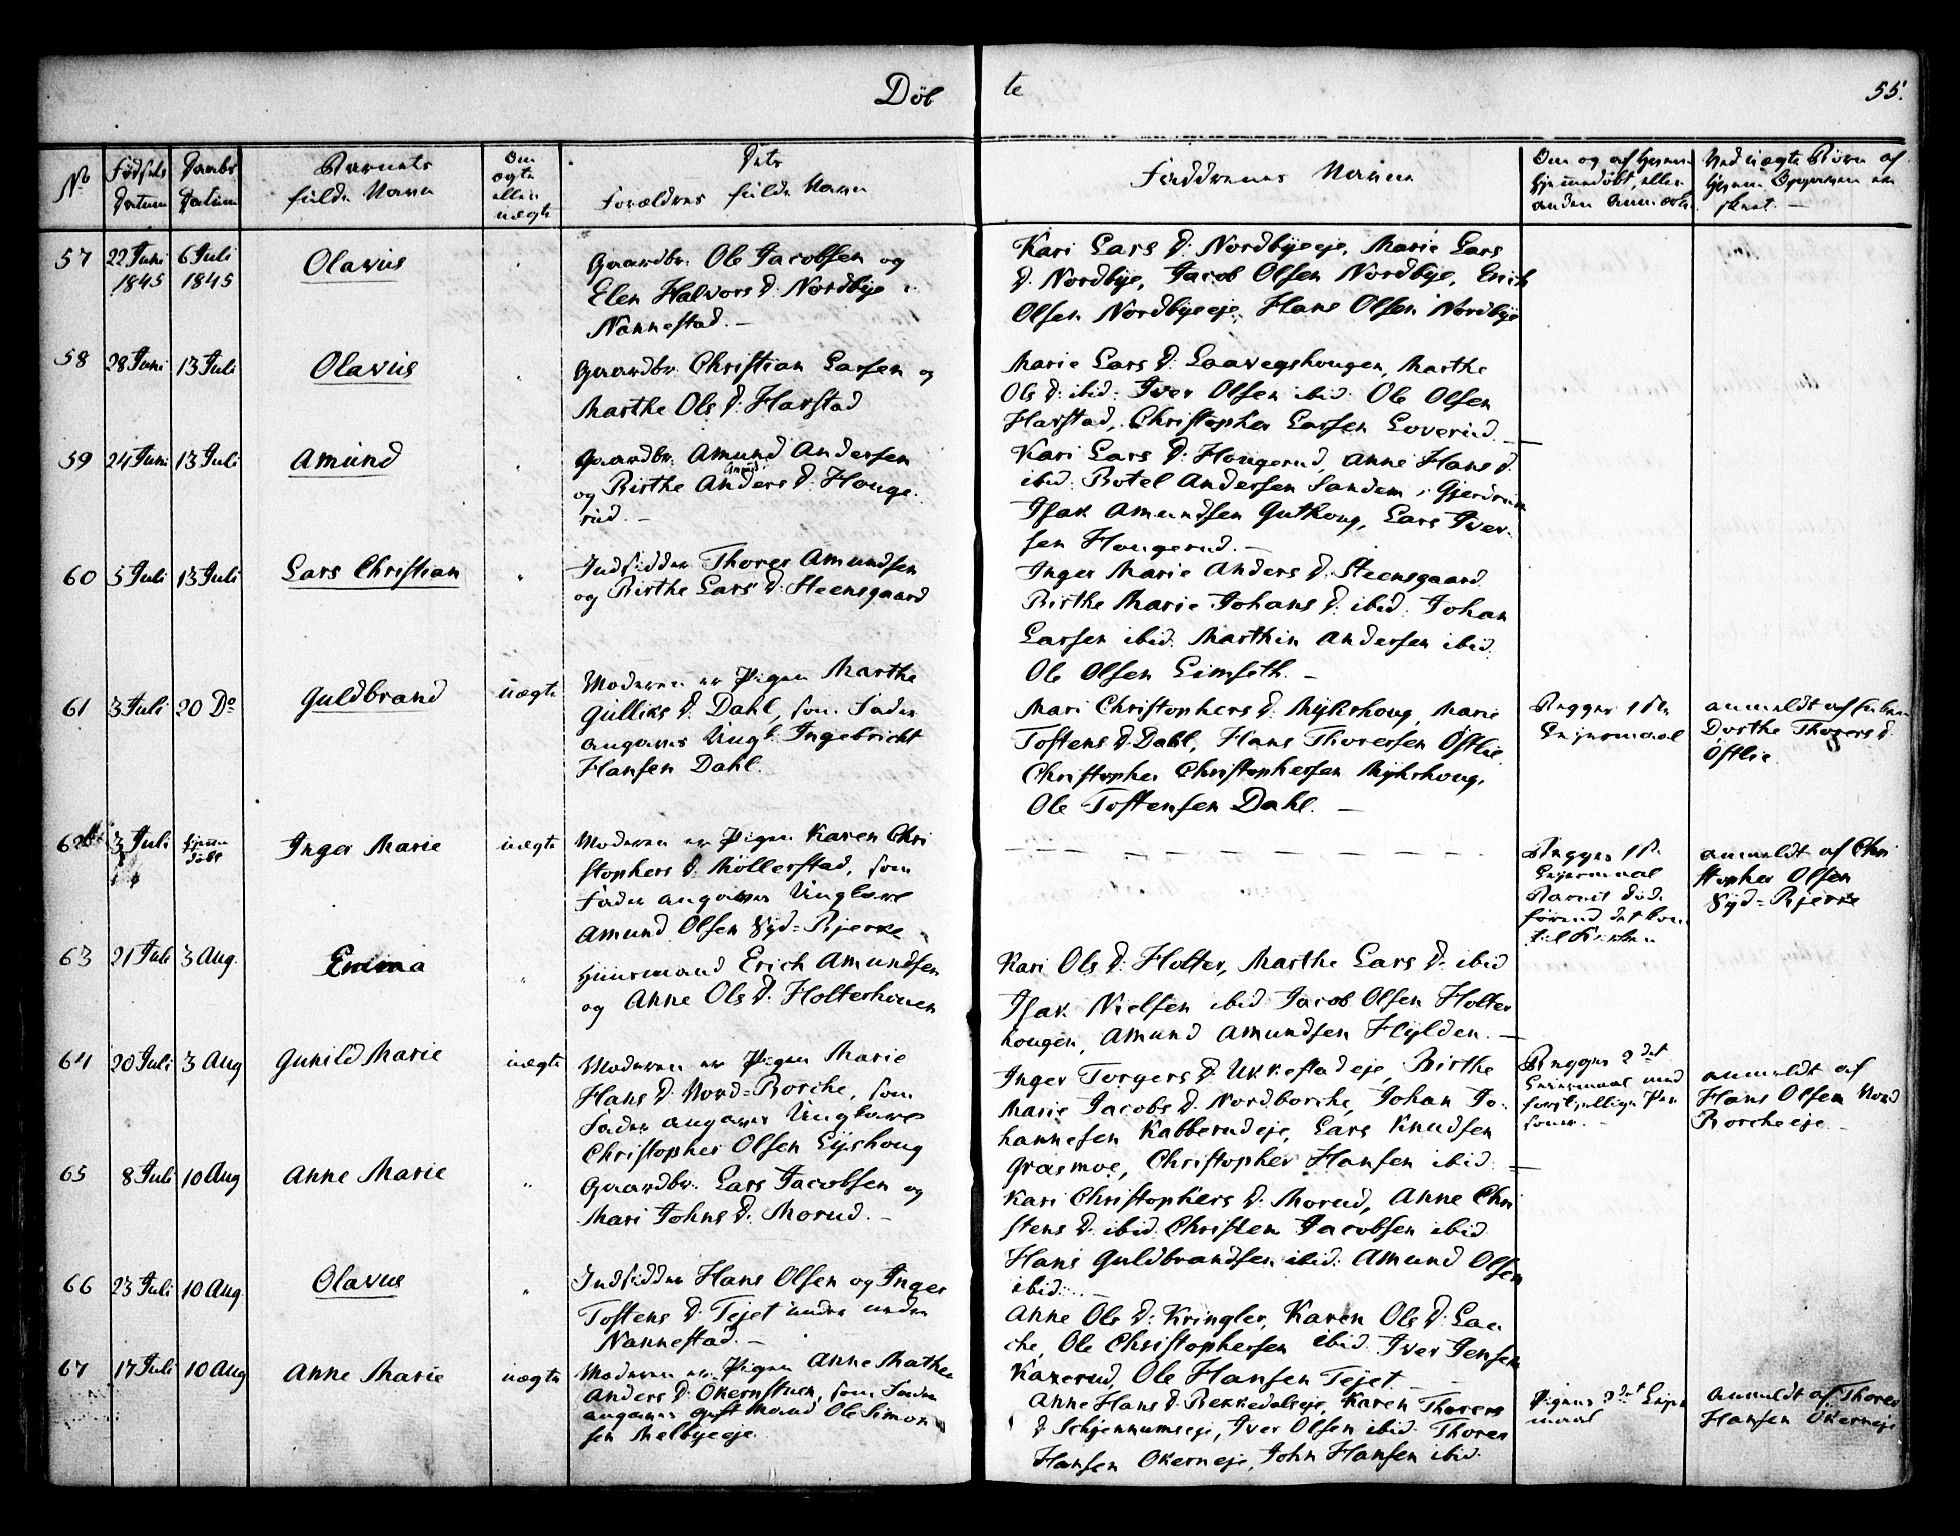 Döbte
55.
No
Födsels Datum
Daabs Datum
Barnets fulde Navn
Om ægte eller uægte
Dets Forældres fulde Navn
Faddrenes Navne
Om og af hvem hjemmedöbt, eller anden Anmærkn.
Ved uægte Börn af hvem Opgaven er skeet. —
57 22 Juni 1845 6 Juli 1845 Olavus
Gaardbr. Ole Jacobsen og
Elen Halvors D. Nordbye i
Nannestad. —
Kari Lars D. Nordbyeeje, Marie Lars
D. Nordbye, Jacob Olsen Nordbye, Erich
Olsen Nordbyeeje, Hans Olsen Nordbye
58 28 Juni 13 Juli Olavus
Gaardbr. Christian Larsen og
Marthe Ols D. Harstad
Marie Lars D. Laavegshougen, Marthe
Ols D. ibid. Iver Olsen ibid. Ole Olsen
Harstad, Christopher Larsen Loverud. —
59 24 Juni 13 Juli Amund
Gaardbr. Amund Andersen
og Birthe Anders D. Houge-
rud. —
Kari Lars D. Hougerud, Anne Hans D.
ibid. Botel Andersen Sandem i Gjerdrum
Isak Amundsen Gutkoug, Lars Iver-
sen Hougerud. —
60 5 Juli 13 Juli Lars Christian
Indsidder Thorer Amundsen
og Birthe Lars D. Steensgaard
Inger Marie Anders D. Steensgaard
Birthe Marie Johans D. ibid. Johan
Larsen ibid. Marthin Andersen ibid.
Ole Olsen Limseth. —
61 3 Juli 20 Do Guldbrand uægte
Moderen er Pigen Marthe
Gulliks D. Dahl, som Fader
angaves Ungk. Ingebricht
Hansen Dahl.
Mari Christophers D. Mykshoug, Marie
Tostens D. Dahl, Hans Thoresen Östlie
Christopher Christophersen Mykshoug,
Ole Tostensen Dahl. —
Begges 1ste
Leiermaal
anmeldt af
Dorthe Thorers D.
Östlie
62 3 Juli hjemmedöbt Inger Marie uægte
Moderen er Pigen Karen Chri
stophers D. Möllerstad, som
Fader angaves Ungkarl
Amund Olsen Syd-Bjerke
Begges 1ste
Leiermaal
Barnet död
förend det kom
til Kirken
anmeldt af Chri
stopher Olsen
Syd-Bjerke
63 21 Juli 3 Aug. Emma
Huusmand Erich Amundsen
og Anne Ols D. Holterhouen
Kari Ols D. Holter, Marthe Lars D. ibid
Isak Nielsen ibid. Jacob Olsen Holter
hougen, Amund Amundsen Hylden. —
64 20 Juli 3 Aug Gunild Marie uægte
Moderen er Pigen Marie
Hans D. Nord-Borche, som
Fader angaves Ungkarl
Christopher Olsen Lyshoug
Inger Torgers D. Ukkestadeje, Birthe
Marie Jacobs D. Nordborche, Johan Jo-
hannesen Kabberudeje, Lars Knudsen
Grasmoe, Christopher Hansen ibid. —
Begges 2det
Leiermaal med
forskjellige Per
soner. —
anmeldt af
Hans Olsen Nord
Borcheeje —
65 8 Juli 10 Aug Anne Marie
Gaardbr. Lars Jacobsen og
Mari Johns D. Morud. —
Kari Christophers D. Morud, Anne Chri
stens D. ibid. Christen Jacobsen ibid
Hans Guldbrandsen ibid. Amund Olsen
ibid. —
66 23 Juli 10 Aug. Olavus
Indsidder Hans Olsen og Inger
Tostens D. Tejet under
Nannestad. —
Anne Ols D. Kringler, Karen Ols D. Laa
che, Ole Christophersen ibid. Iver Jensen
Kaxerud, Ole Hansen Tejet. —
67 17 Juli 10 Aug Anne Marie uægte
Moderen er Pigen Anne Mathea
Anders D. Ökernstuen, som Fader
angaves gift Mand Ole Simon
sen Melbyeeje
Anne Hans D. Bekkedalseje, Karen Thorers
D. Schjennumseje, Iver Olsen ibid. Thorer
Hansen Ökerneje, John Hansen ibid.
Pigens 2det Leier
maal
anmeldt af Thorer
Hansen Ökerneje